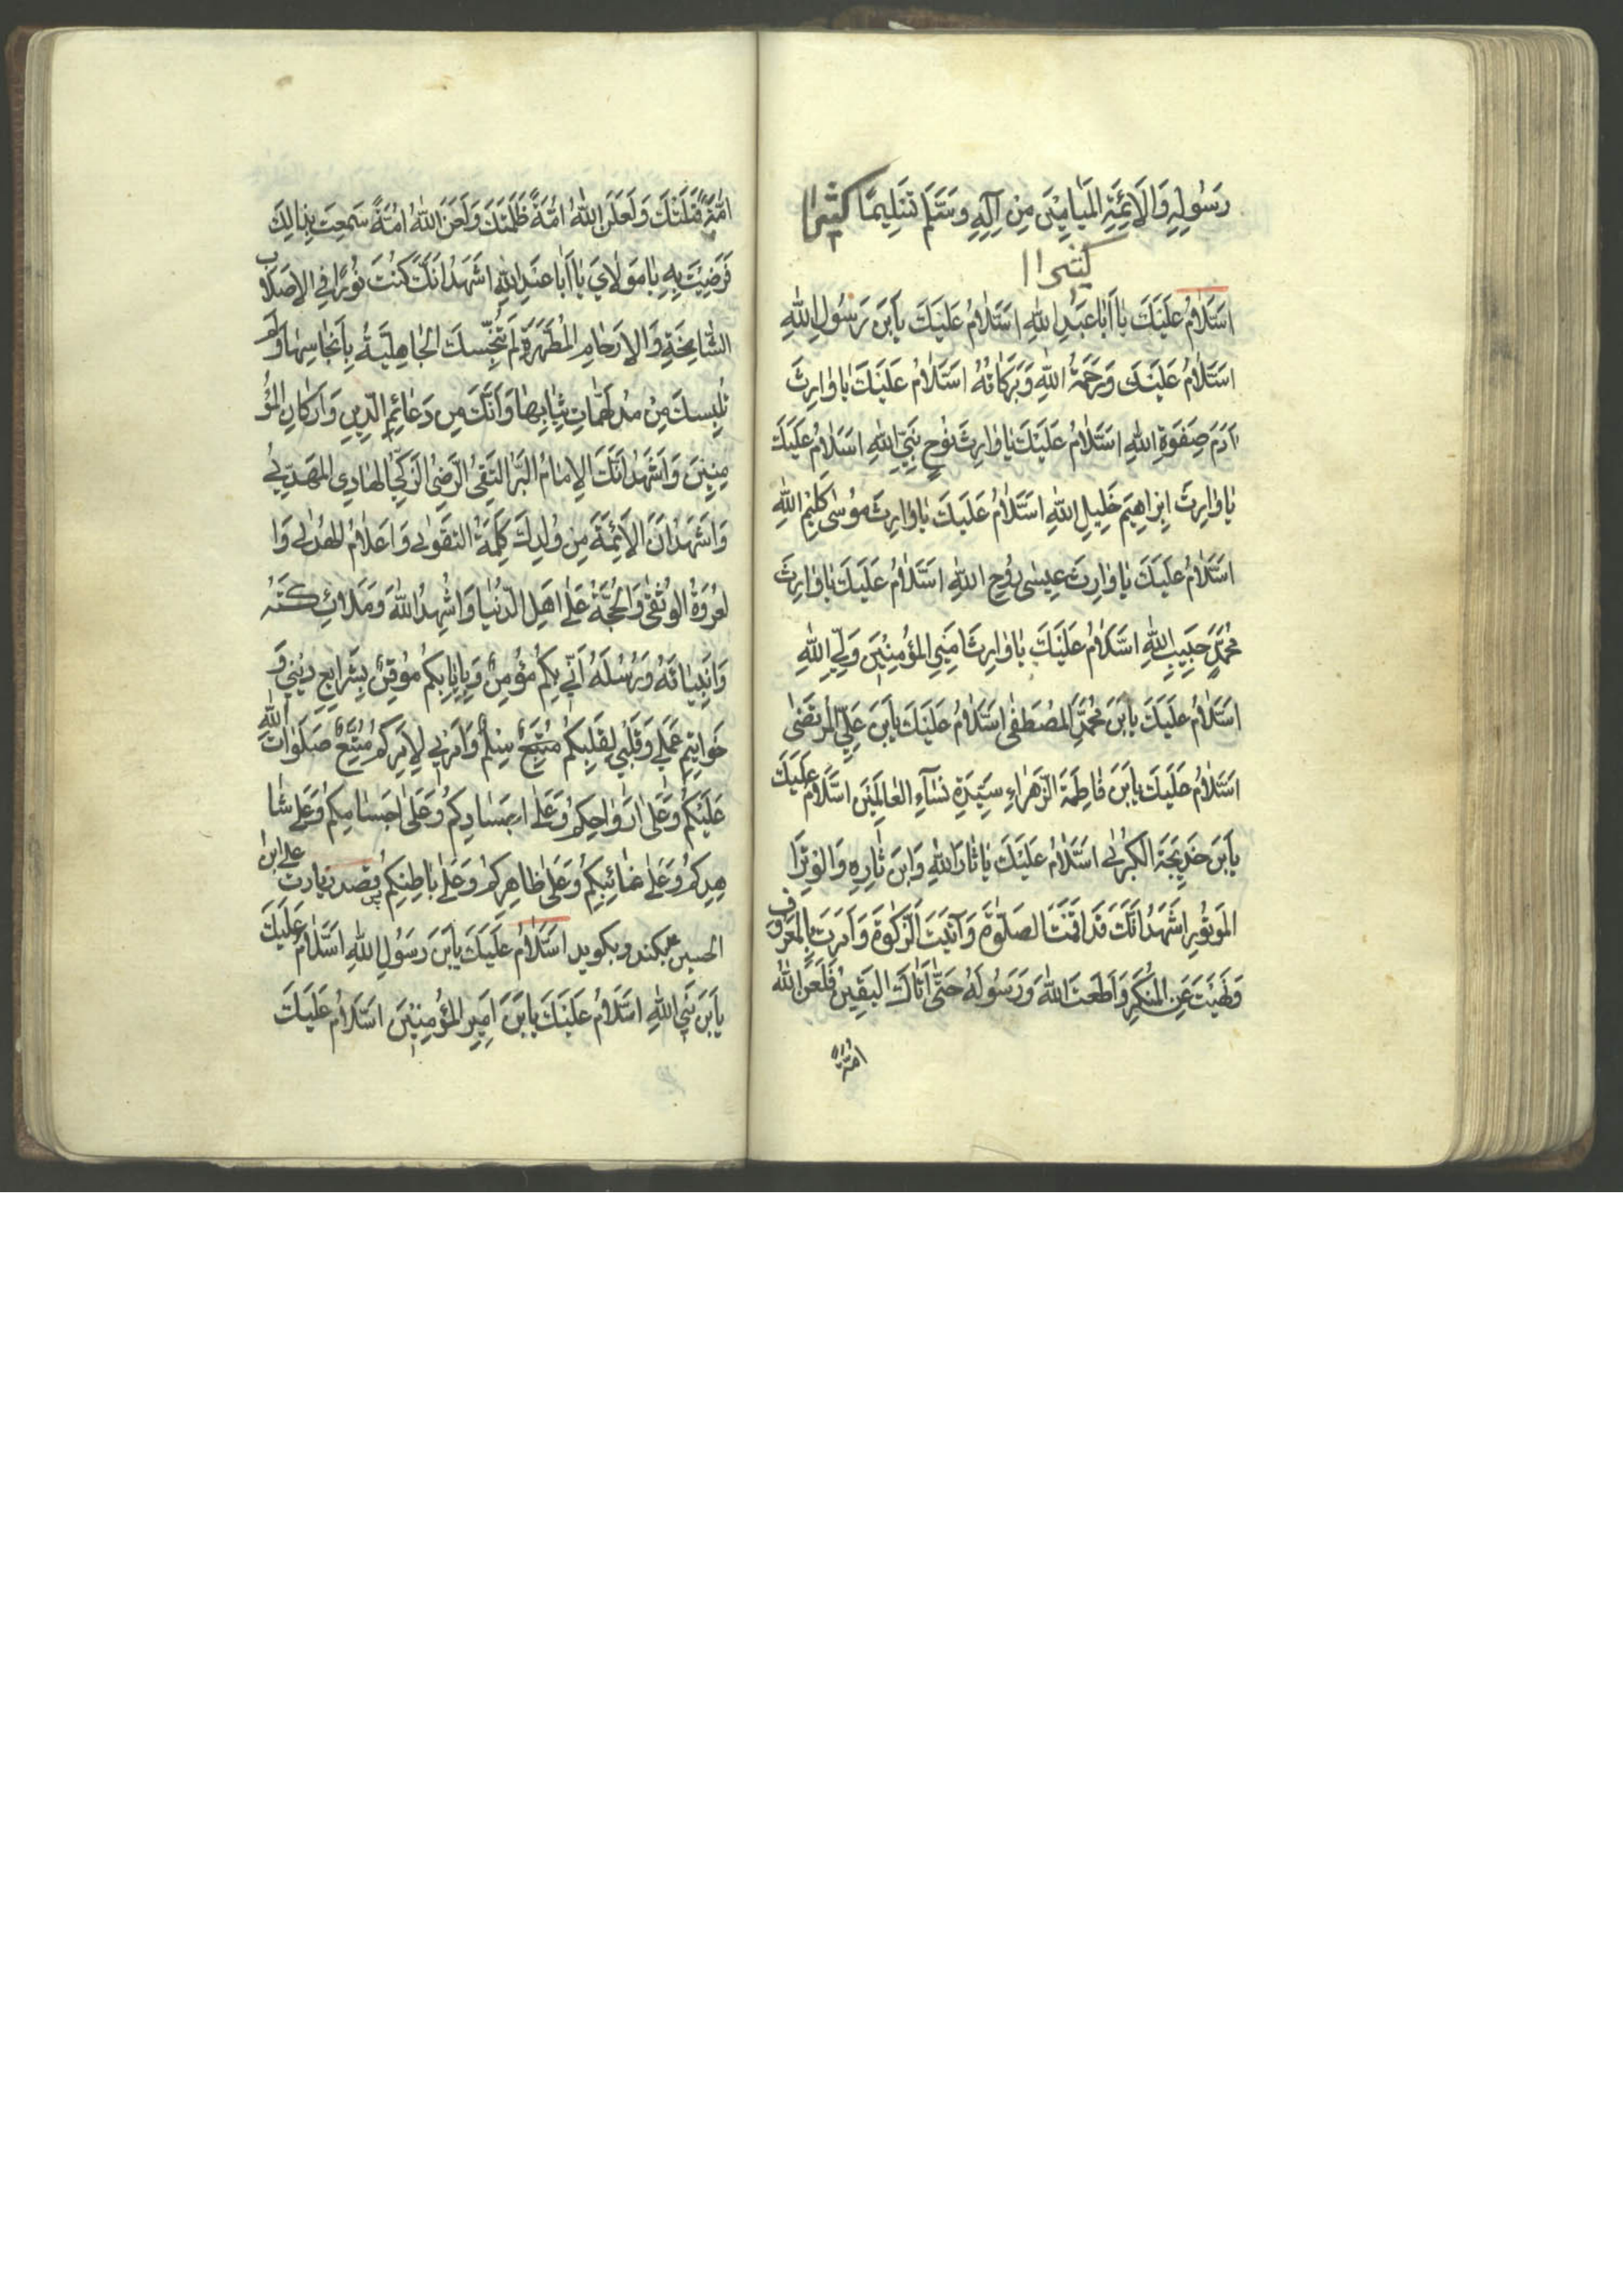 رَسُولِهِ وَالاَئِمَّةِ المَيامِيْنَ مِن آلِهِ وسَلَّمَ تَسْلِيمًا كَثِيرًا
كثيرا
اسَّلامُ عَلَيْكَ يا اَبا عَبْدِ اللهِ اسَّلامُ عَلَيْكَ يابْنَ رَسُولِ اللهِ
اسَّلامُ عَلَيْكَ وَرَحْمَةُ اللهِ وَبَرَكاتُهُ اسَّلامُ عَلَيْكَ يا وارِثَ
آدَمَ صِفْوَةِ اللهِ اسَّلامُ عَلَيْكَ يا وارِثَ نُوحٍ نَبِيِّ اللهِ اسَّلامُ عَلَيْكَ
يا وارِثَ اِبْراهِيمَ خَلِيلِ اللهِ اسَّلامُ عَلَيْكَ يا وارِثَ مُوسى كَلِيمِ اللهِ
اسَّلامُ عَلَيْكَ يا وارِثَ عِيسى رُوحِ اللهِ اسَّلامُ عَلَيْكَ يا وارِثَ
مُحَمَّدٍ حَبِيبِ اللهِ اسَّلامُ عَلَيْكَ يا وارِثَ اَمِيرِ المُؤْمِنِيْنَ وَلِيِّ اللهِ
اسَّلامُ عَلَيْكَ يابْنَ مُحَمَّدِ المُصْطَفى اسَّلامُ عَلَيْكَ يابْنَ عَلِيِّ المُرْتَضى
اسَّلامُ عَلَيْكَ يابْنَ فاطِمَةَ الزَّهْراءِ سَيِّدَةِ نِسآءِ العالَمِيْنَ اسَّلامُ عَلَيْكَ
يابْنَ خَدِيجَةَ الكُبْرى اسَّلامُ عَلَيْكَ يا ثارَ اللهِ وَابْنَ ثارِهِ وَالوِتْرَ ا
المَوْتُورِ اَشْهَدُ اَنَّكَ قَدْ اَقَمْتَ الصَّلوةَ وَآتَيْتَ الزَّكوةَ وَاَمَرْتَ بِالمَعْرُوف
وَنَهَيْتَ عَنِ المُنْكَرِ وَاَطَعْتَ اللهَ وَرَسُولَهُ حَتّى اَتاكَ اليَقِينُ فَلَعَنَ اللهُ
امّة
اُمَّةً قَتَلَتْكَ وَلَعَنَ اللهُ اُمَّةً ظَلَمَتْكَ وَلَعَنَ اللهُ اُمَّةً سَمِعَتْ بِذالِكَ
فَرَضِيَتْ بِهِ يا مَوْلايَ يا اَبا عَبْدِ اللهِ اَشْهَدُ اَنَّكَ كُنْتَ نُورًا فِي الاَصْلاب
الشّامِخَةِ وَالاَرْحامِ المُطَهَّرَةِ لَمْ تُنَجِّسْكَ الجاهِلِيَّةُ بِاَنْجاسِها وَلَم
تُلْبِسْكَ مِنْ مُدْلَهِمّاتِ ثِيابِها وَاَنَّكَ مِن دَعائِمِ الدِّينِ وَاَرْكانِ المُؤْ
مِنِينَ وَاَشْهَدُ اَنَّكَ الاِمامُ البَرُّ التَّقِيُّ الرَّضِيُّ الزَّكِيُّ الهادِي المَهْدِيُّ
وَاَشْهَدُ اَنَّ الاَئِمَّةَ مِن وُلْدِكَ كَلِمَةُ التَّقْوى وَاَعْلامُ الهُدى وَا
لعُرْوَةُ الوُثْقى وَالحُجَّةُ عَلى اَهْلِ الدُّنْيا وَاُشْهِدُ اللهَ وَمَلائِكَتَهُ
وَاَنْبِيائَهُ وَرُسُلَهُ اَنِّي بِكُمْ مُؤْمِنٌ وَبِاِيابِكُمْ مُوقِنٌ بِشَرايِعِ دِيْنِي وَ
خَواتِيمِ عَمَلِي وَقَلْبِي لِقَلْبِكُمْ سِلْمٌ وَاَمْرِي لِاَمْرِكُمْ مُتَّبِعٌ صَلَواتُ اللهِ
عَلَيْكُمْ وَعَلى اَرْواحِكُمْ وَعَلى اَجْسادِكُمْ وَعَلى اَجْسامِكُمْ وَعَلى شا
هِدِكُمْ وَعَلى غائِبِكُمْ وَعَلى ظاهِرِكُمْ وَعَلى باطِنِكُمْ پس قصد زيارت على ابن
الحسين ميكند وبگويد اسَّلامُ عَلَيْكَ يابْنَ رَسُولِ اللهِ اسَّلامُ عَلَيْكَ
يابْنَ نَبِيِّ اللهِ اسَّلامُ عَلَيْكَ يابْنَ اَمِيرِ المُؤْمِنِيْنَ اسَّلامُ عَلَيْكَ